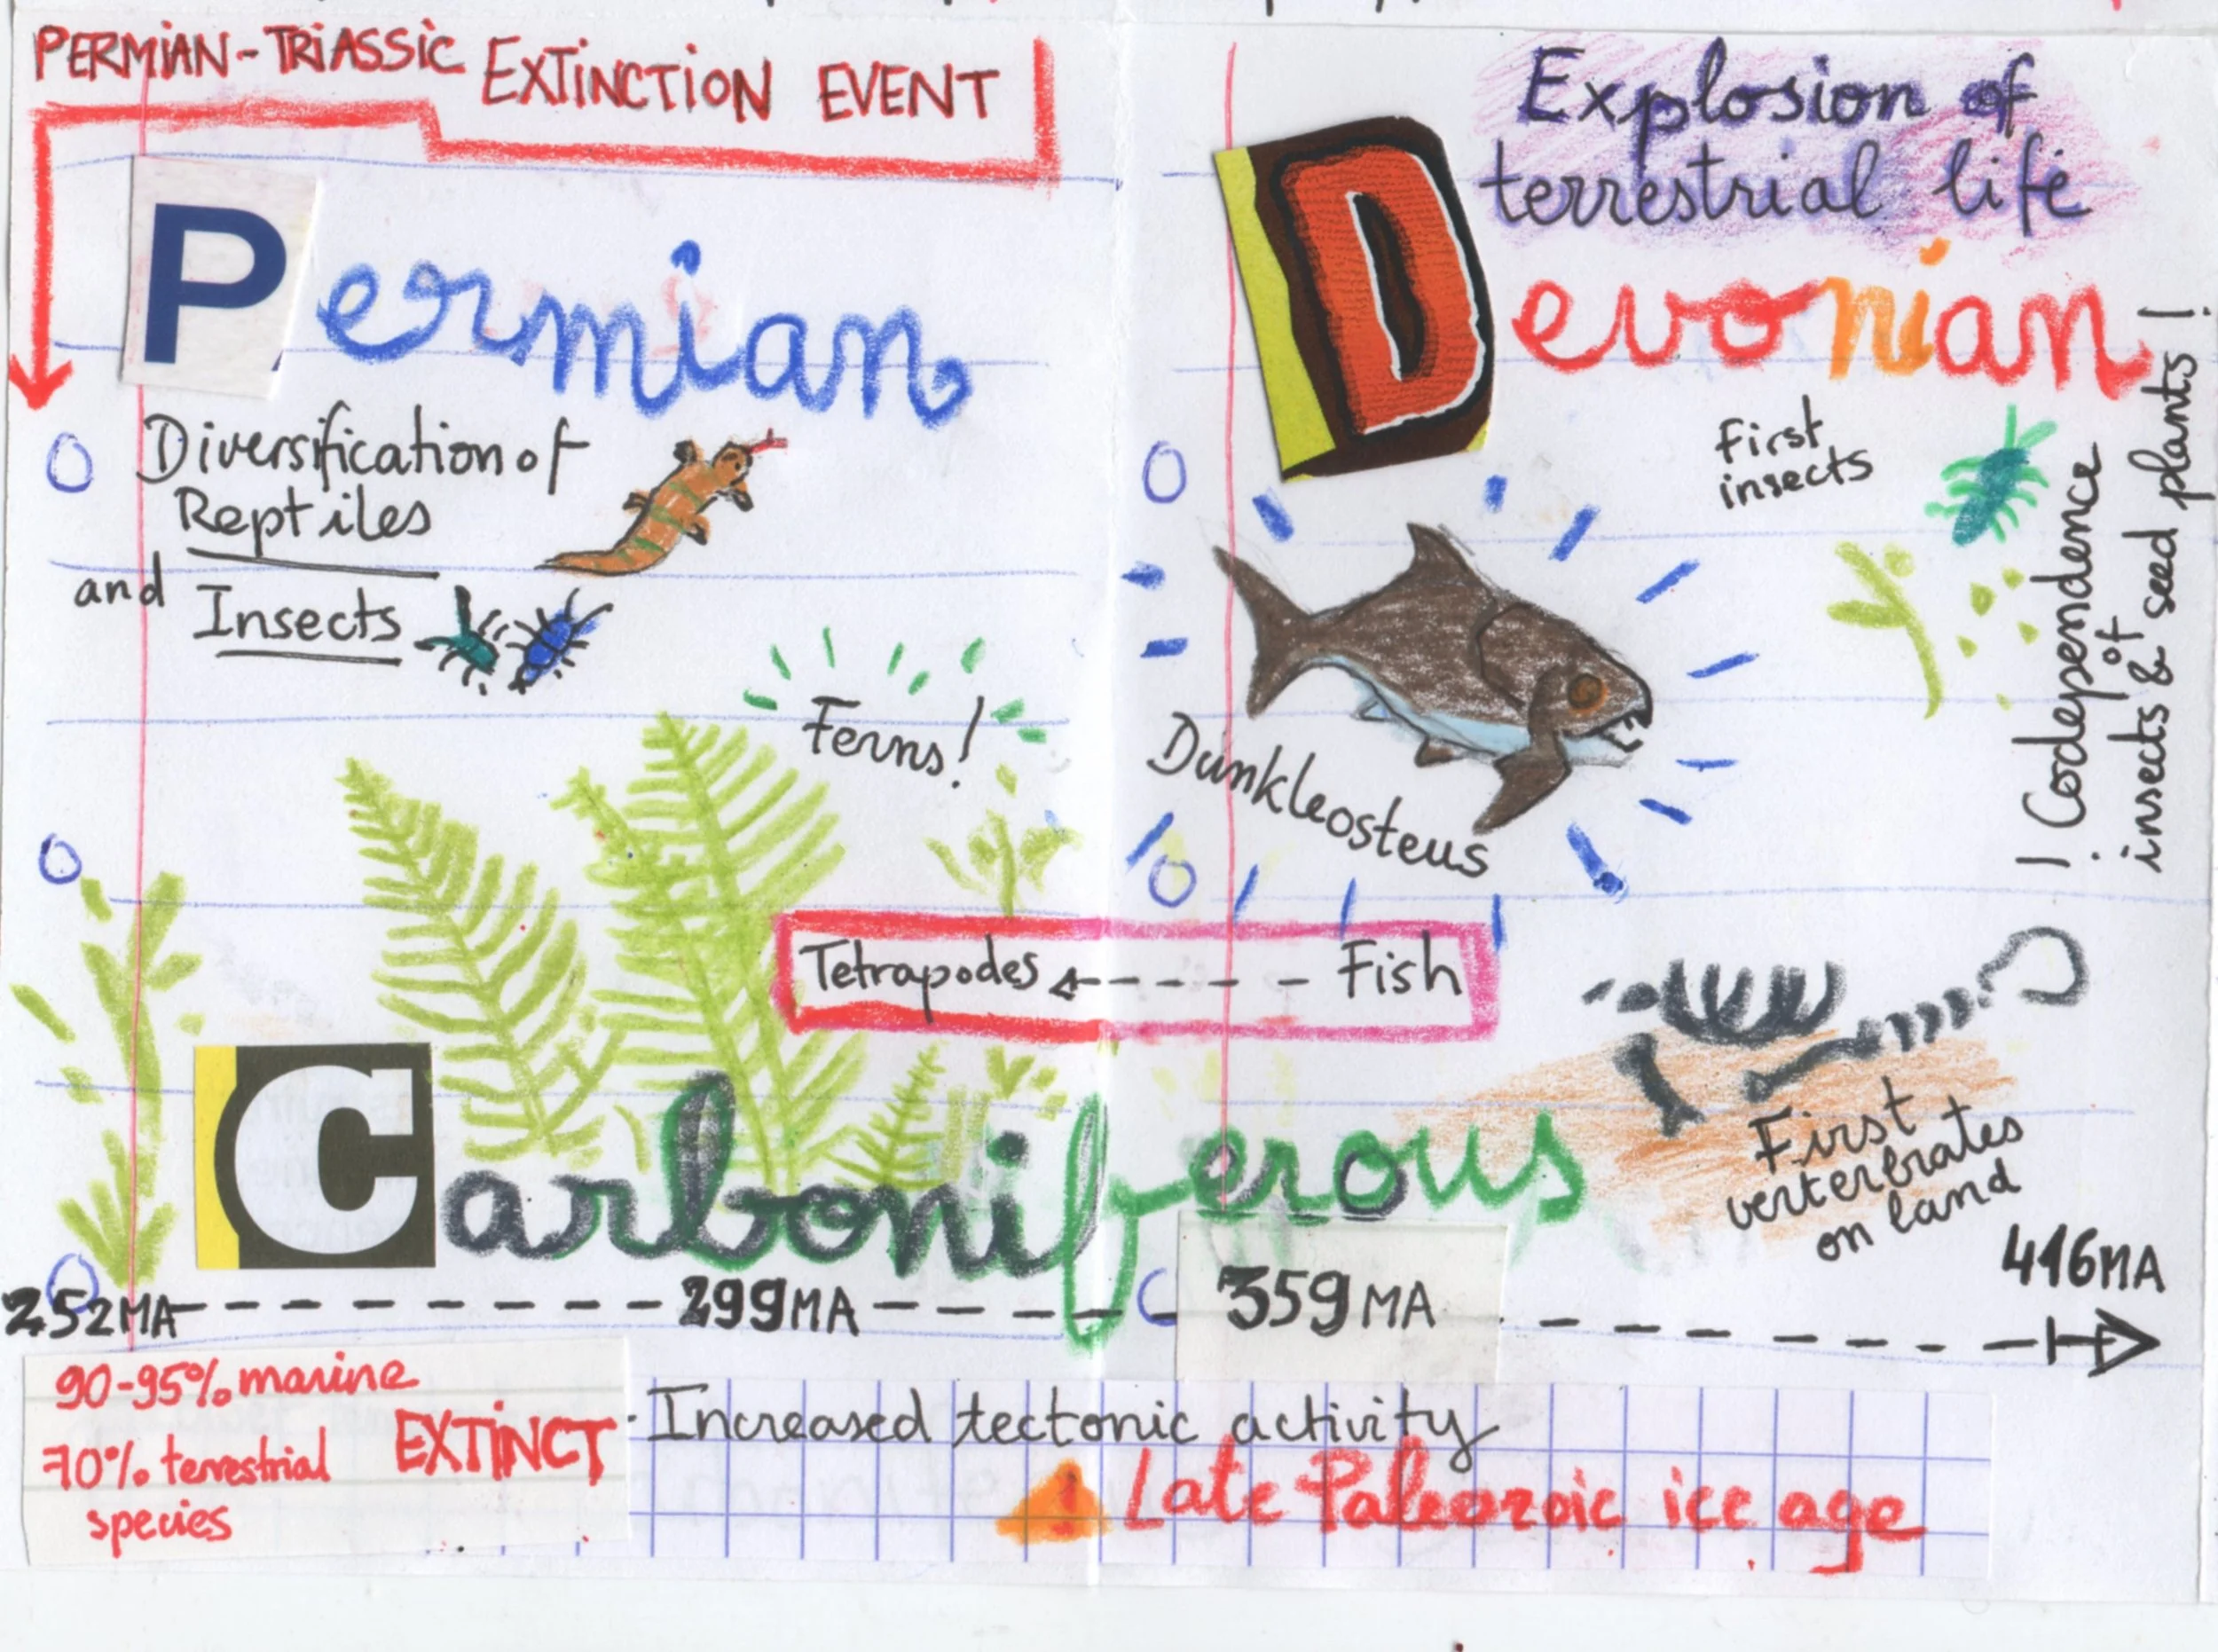 PERMIAN-TRIASSIC EXTINCTION EVENT
Permian
Diversification of
Reptiles
and Insects
Ferns!
Explosion of
terrestrial life
Devonian
First
insects
! Codependence
of
insects & seed plants!
Dunkleosteus
Tetrapodes Fish
First
verterbrates
on land
Carboniferous
252MA 299MA 359MA 416MA
90-95% marine
70% terrestrial
species
EXTINCT
Increased tectonic activity
Late Paleozoic ice age